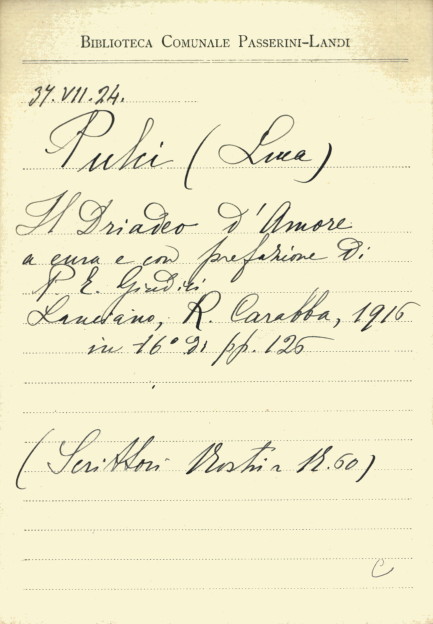 BIBLIOTECA COMUNALE PASSERINI-LANDI
37.VII.24.
Pulci (Luca)
Il Driadeo d'Amore
a cura e con prefazione di
P. E. Giudici
Lanciano, R. Carabba, 1916
in 16° di pp. 126
(Scrittori Nostri n N.60)
C